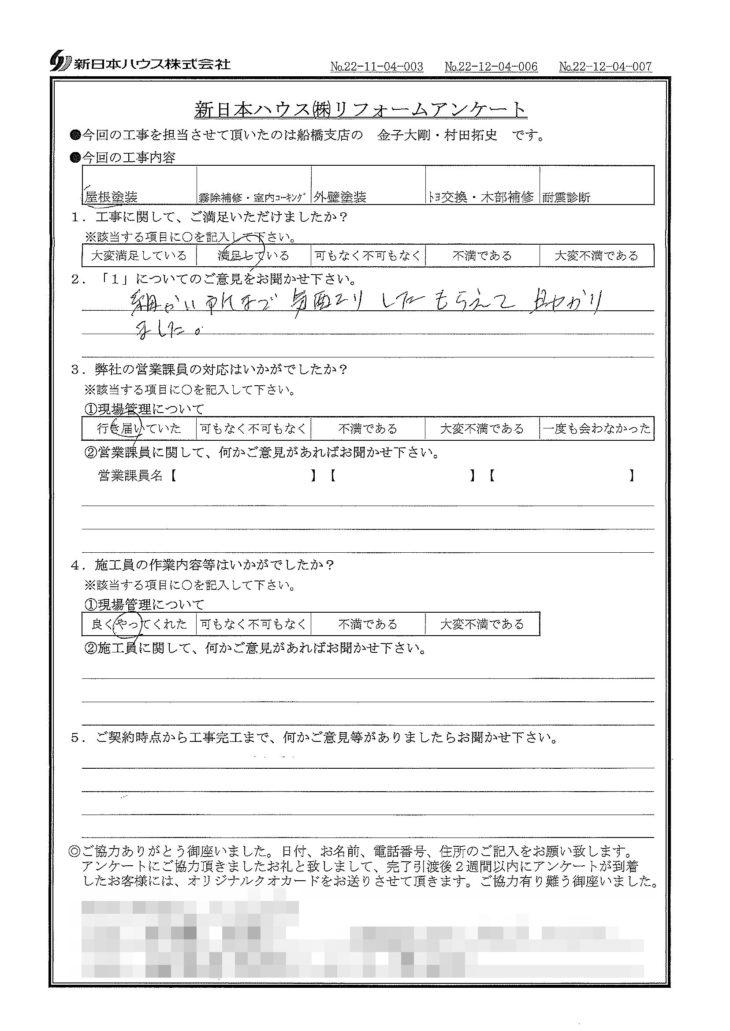 新日本ハウス株式会社
No.22-11-04-003 No.22-12-04-006 No.22-12-04-007
新日本ハウス㈱リフォームアンケート
●今回の工事を担当させて頂いたのは船橋支店の 金子大剛・村田拓史 です。
●今回の工事内容
屋根塗装 霧除補修・室内ｺｰｷﾝｸﾞ 外壁塗装 ﾄﾖ交換・木部補修 耐震診断
1．工事に関して、ご満足いただけましたか？
※該当する項目に○を記入して下さい。
大変満足している 満足している 可もなく不可もなく 不満である 大変不満である
2．「1」についてのご意見をお聞かせ下さい。
細かい所まで 気配り したもらえて 助かり
ました。
3．弊社の営業課員の対応はいかがでしたか？
※該当する項目に○を記入して下さい。
①現場管理について
行き届いていた 可もなく不可もなく 不満である 大変不満である 一度も会わなかった
②営業課員に関して、何かご意見があればお聞かせ下さい。
営業課員名【 】【 】【 】
4．施工員の作業内容等はいかがでしたか？
※該当する項目に○を記入して下さい。
①現場管理について
良くやってくれた 可もなく不可もなく 不満である 大変不満である
②施工員に関して、何かご意見があればお聞かせ下さい。
5．ご契約時点から工事完工まで、何かご意見等がありましたらお聞かせ下さい。
◎ご協力ありがとう御座いました。日付、お名前、電話番号、住所のご記入をお願い致します。
アンケートにご協力頂きましたお礼と致しまして、完了引渡後２週間以内にアンケートが到着
したお客様には、オリジナルクオカードをお送りさせて頂きます。ご協力有り難う御座いました。